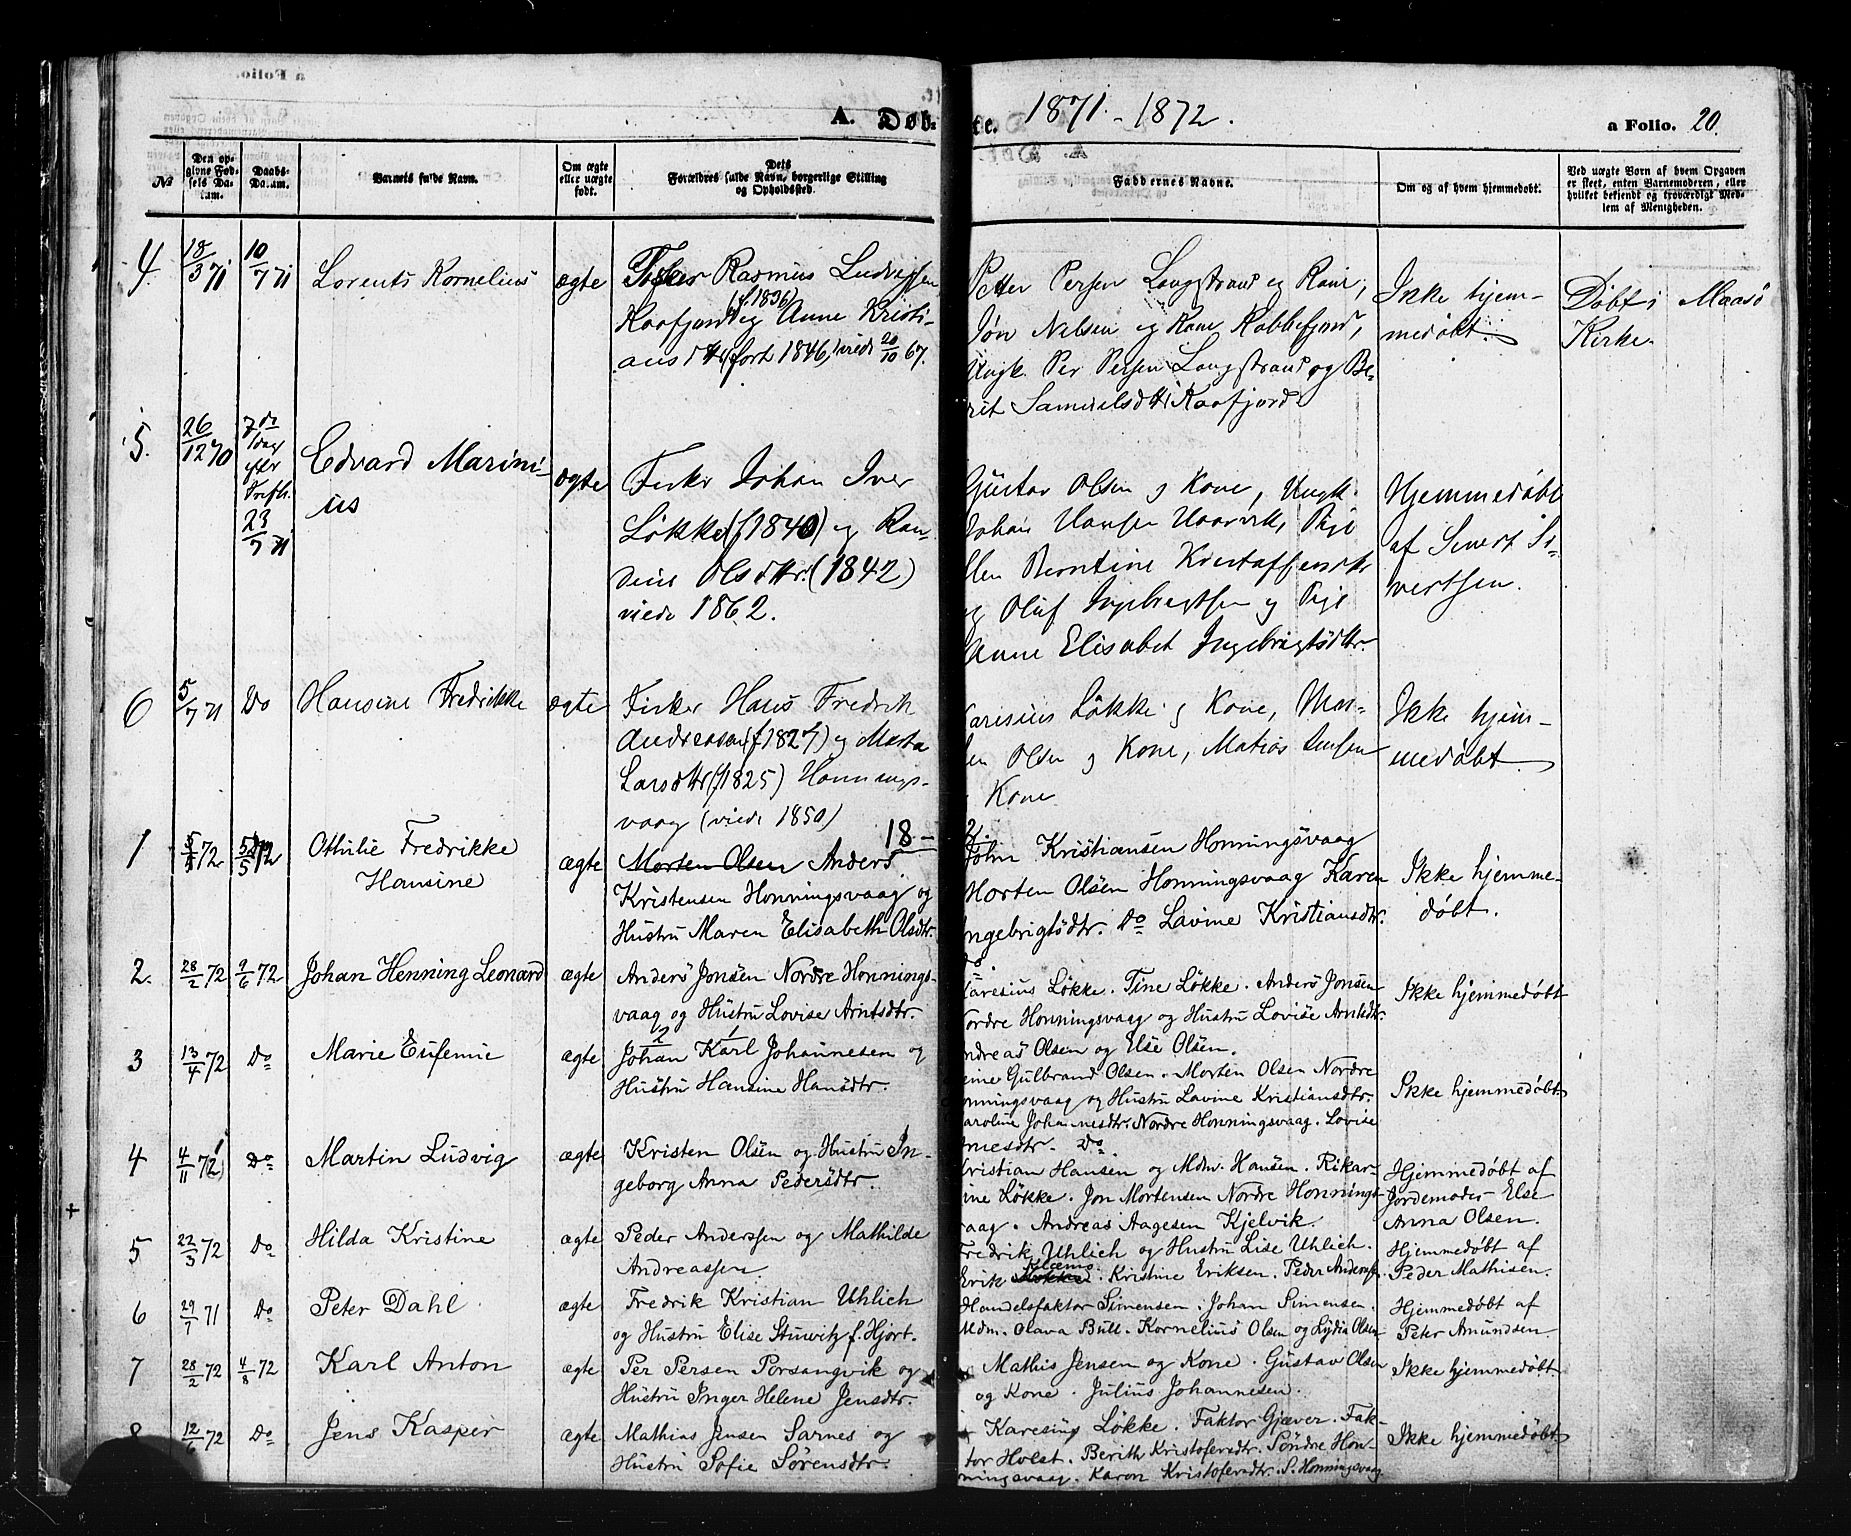 A. Døb-
te. 1871 - 1872.
a Folio. 20.
№
Den op-
givne Fød-
sels Da-
tum.
Daabs-
Datum.
Barnets fulde Navn.
Om ægte
eller uægte
født.
Dets
Forældres fulde Navn, borgerlige Stilling
og Opholdssted.
Faddernes Navne.
Om og af hvem hjemmedøbt.
Ved uægte Børn af hvem Opgaven
er skeet, enten Barnemoderen, eller
hvilket bekjendt og troværdigt Med-
lem af Menigheden.
4. 18/3 71 10/7 71 Lorents Kornelius ægte Fisker Rasmus Ludvigsen
(f. 1836)
Kaafjord og Anne Kristi-
ansdttr (født 1846, viede 20/10 67.
Petter Persen Langstrand og Kone,
Jøn Nilsen og Kone Kobbefjord,
Ungk. Per Persen Langstrand og Be-
rit Samuelsdttr Kaafjord
Ikke hjem-
medøbt.
Døbt i Maasø
Kirke.
5. 26/12 70 7de
Søndag
efter
Trefh.
23/7 71
Edvard Marini-
us
ægte
Fisker Johan Iver
Løkke (f 1840) og Ran-
dine Olsdttr. (1842)
viede 1862.
Gustav Olsen og Kone, Ungk.
Johan Hansen Pige
Berntine
og Oluf Ingebrigtsen og Pige
Anne Elisabet Ingebrigtsdttr.
Hjemmedøbt
af Sivert Si-
vertsen.
6 5/7 71 Do Hansine Fredrikke ægte Fisker Hans Fredrik
Andreasen (f 1827) og Marta
Larsdttr (f 1825) Honnings-
vaag (viede 1850)
Karesius Løkke og Kone, Mor-
ten Olsen og Kone, Matias Jensen
Kone
Ikke hjem-
medøbt.
18-
72.
1 72 5/5 72 Othilie Fredrikke
Hansine
ægte Morten Olsen Anders
Kristensen Honningsvaag og
Hustru Maren Elisabeth Olsdtr.
John Kristiansen Honningsvaag
Morten Olsen Honningsvaag Karen
Ingebrigtsdtr. Do Lavine Kristiansdtr.
Ikke hjemme-
døbt.
2. 28/2 72 9/6 72 Johan Henning Leonard ægte Anders Jonsen Nordre Honnings-
vaag og Hustru Lovise Arntsdtr.
Do
Karesius Løkke. Tine Løkke. Anders Jonsen
Nordre Honningsvaag og Hustru Lovise Arntsdtr.
Andreas Olsen og Else Olsen.
Ikke hjemmedøbt
3 13/4 72 Do Marie Eufemie ægte 2 1
Johan Karl Johannesen og
Hustru Hansine Hansdtr.
Gulbrand Olsen. Morten Olsen Nordre
Honningsvaag og Hustru Lavine Kristiansdtr.
Karoline Johannesdtr. Nordre Honningsvaag. Lovise
Do.
Ikke hjemmedøbt.
4 4/11 72 Do Martin Ludvig ægte Kristen Olsen og Hustru In-
geborg Anna Pedersdtr.
Kristian Hansen og Mdm. Hansen. Rikar-
dine Løkke. Jon Mortensen Nordre Honnings-
vaag. Andreas Aagesen Kjelvik.
Hjemmedøbt af
Jordemoder Else
Anna Olsen.
5 22/3 72 Do Hilda Kristine ægte Peder Anderssen og Mathilde
Andreassen.
Fredrik Uhlich og Hustru Lise Uhlich.
Erik Løkke. Kristine Eriksen. Peder Anders.
Hjemmedøbt af
Peder Mathisen.
6 29/7 71 Do Peter Dahl ægte Fredrik Kristian Uhlich
og Hustru Elise Stuwitz f. Hjort.
Handelsfaktor Simensen. Johan Simensen.
Mdm. Olava Bull. Kornelius Olsen og Lydia Olsen
Hjemmedøbt af
Peter Amundsen.
7 28/2 72 4/8 72 Karl Anton ægte Per Persen Porsangvik og
Hustru Inger Helene Jensdtr.
Mathis Jensen og Kone. Gustav Olsen
og Kone. Julius Johannesen.
Ikke hjemmedøbt
8 12/6 72 Do Jens Kasper ægte Mathias Jensen Sarnes og
Hustru Sofie Sørensdtr.
Karesius Løkke. Faktor Gjæver. Fak-
tor Holst. Berith Kristofersdtr. Søndre Hon-
ningsvaag. Karen Kristofersdtr. S. Honningsvaag
Ikke hjemmedøbt.